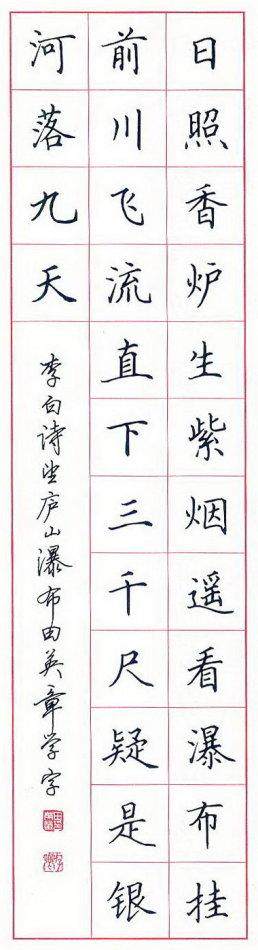 日照香炉生紫烟遥看瀑布挂
前川飞流直下三千尺疑是银
河落九天
李白诗望庐山瀑布田英章学字